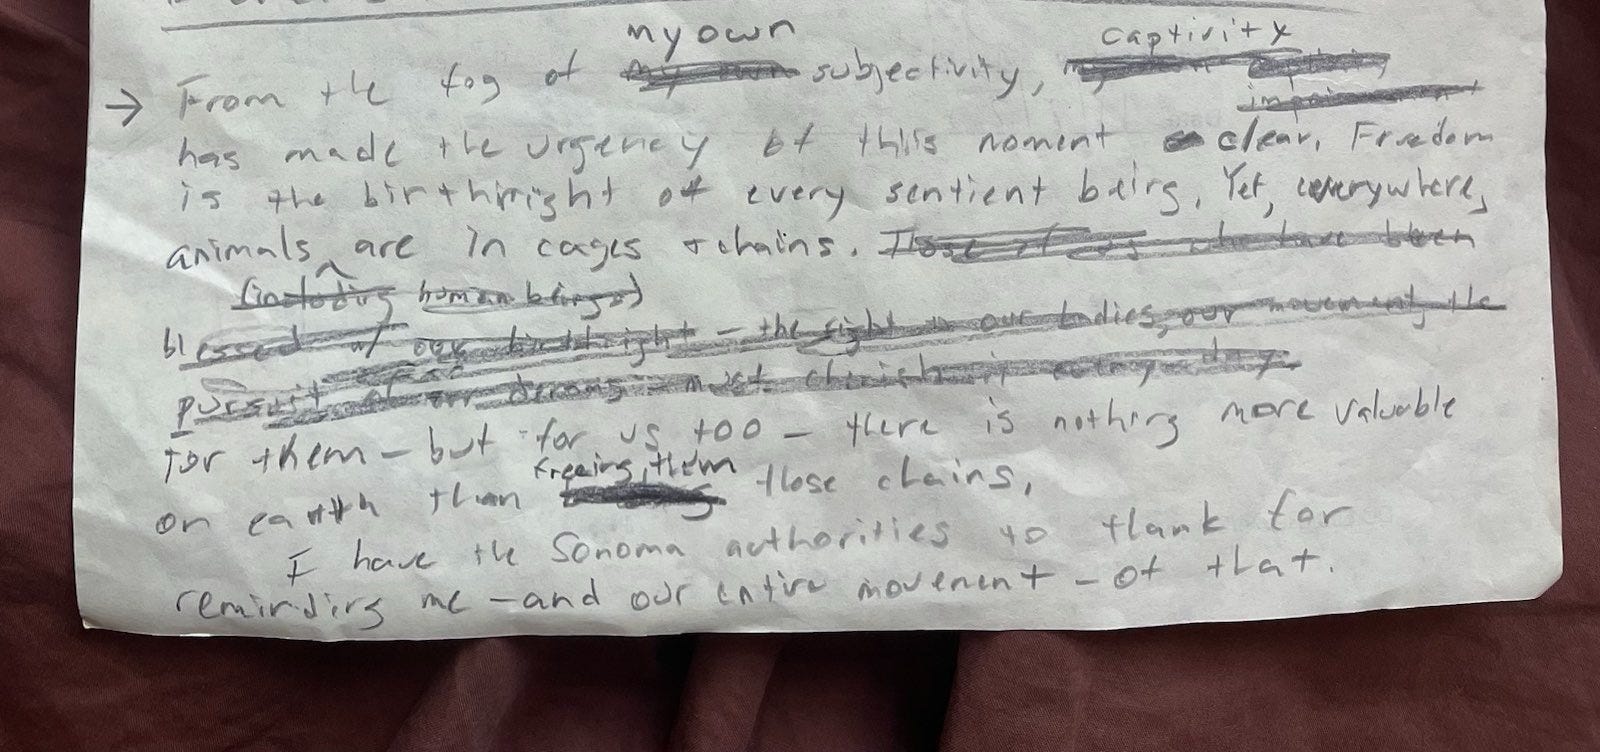 my own captivity
→ From the fog of my own subjectivity,
has made the urgency of this moment clear. Freedom
is the birthright of every sentient being. Yet, everywhere,
animals are in cages + chains. Those of us who have been
(including human beings)
blessed w/ our birthright – the right in our bodies, our movement, the
pursuit of our dreams – must cherish it every day.
For them – but for us too – there is nothing more valuable
freeing them
on earth than those chains.
I have the Sonoma authorities to thank for
reminding me – and our entire movement – of that.